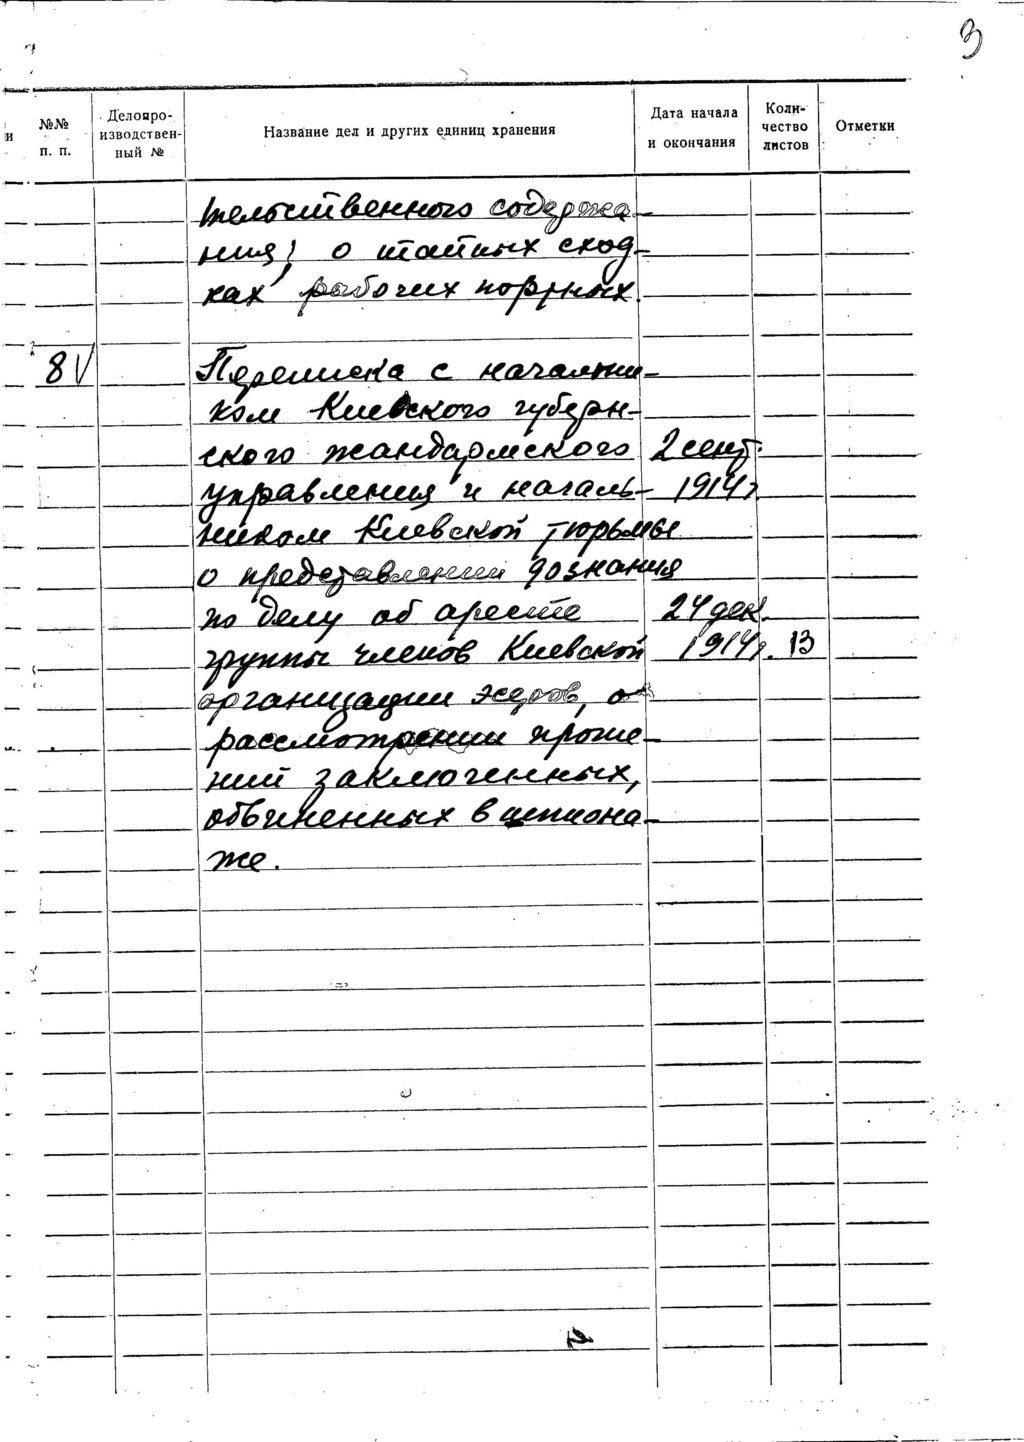 3
и
№№
п. п.
Делопро-
изводствен-
ный №
Название дел и других единиц хранения
Дата начала
и окончания
Коли-
чество
листов
Отметки
тельственного содержа-
ния; о тайных сход-
ках рабочих портных
8 V
Переписка с начальни-
ком Киевского губерн-
ского жандармского 2 сент.
управления и началь- 1914 г
ником Киевской тюрьмы
о представлении дознания
по делу об аресте 24 дек.
группы членов Киевской 1914 г. 13
организации эсеров, о
рассмотрении проше-
ний заключенных,
обвиненных в шпиона-
же.